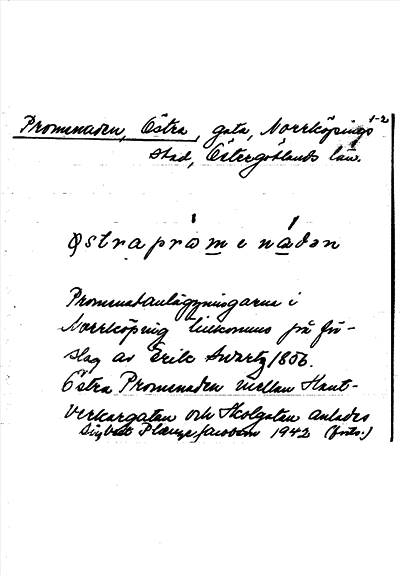 1-2
Promenaden, Östra, gata, Norrköpings
stad, Östergötlands län.
østrapråmenádən
Promenadanläggningarna i
Norrköping tillkommo på för-
slag av Erik Swartz 1856.
Östra Promenaden mellan Hant-
verkargatan och Skolgatan anlades
Sigbrit Plænge Jacobson 1942 (forts.)